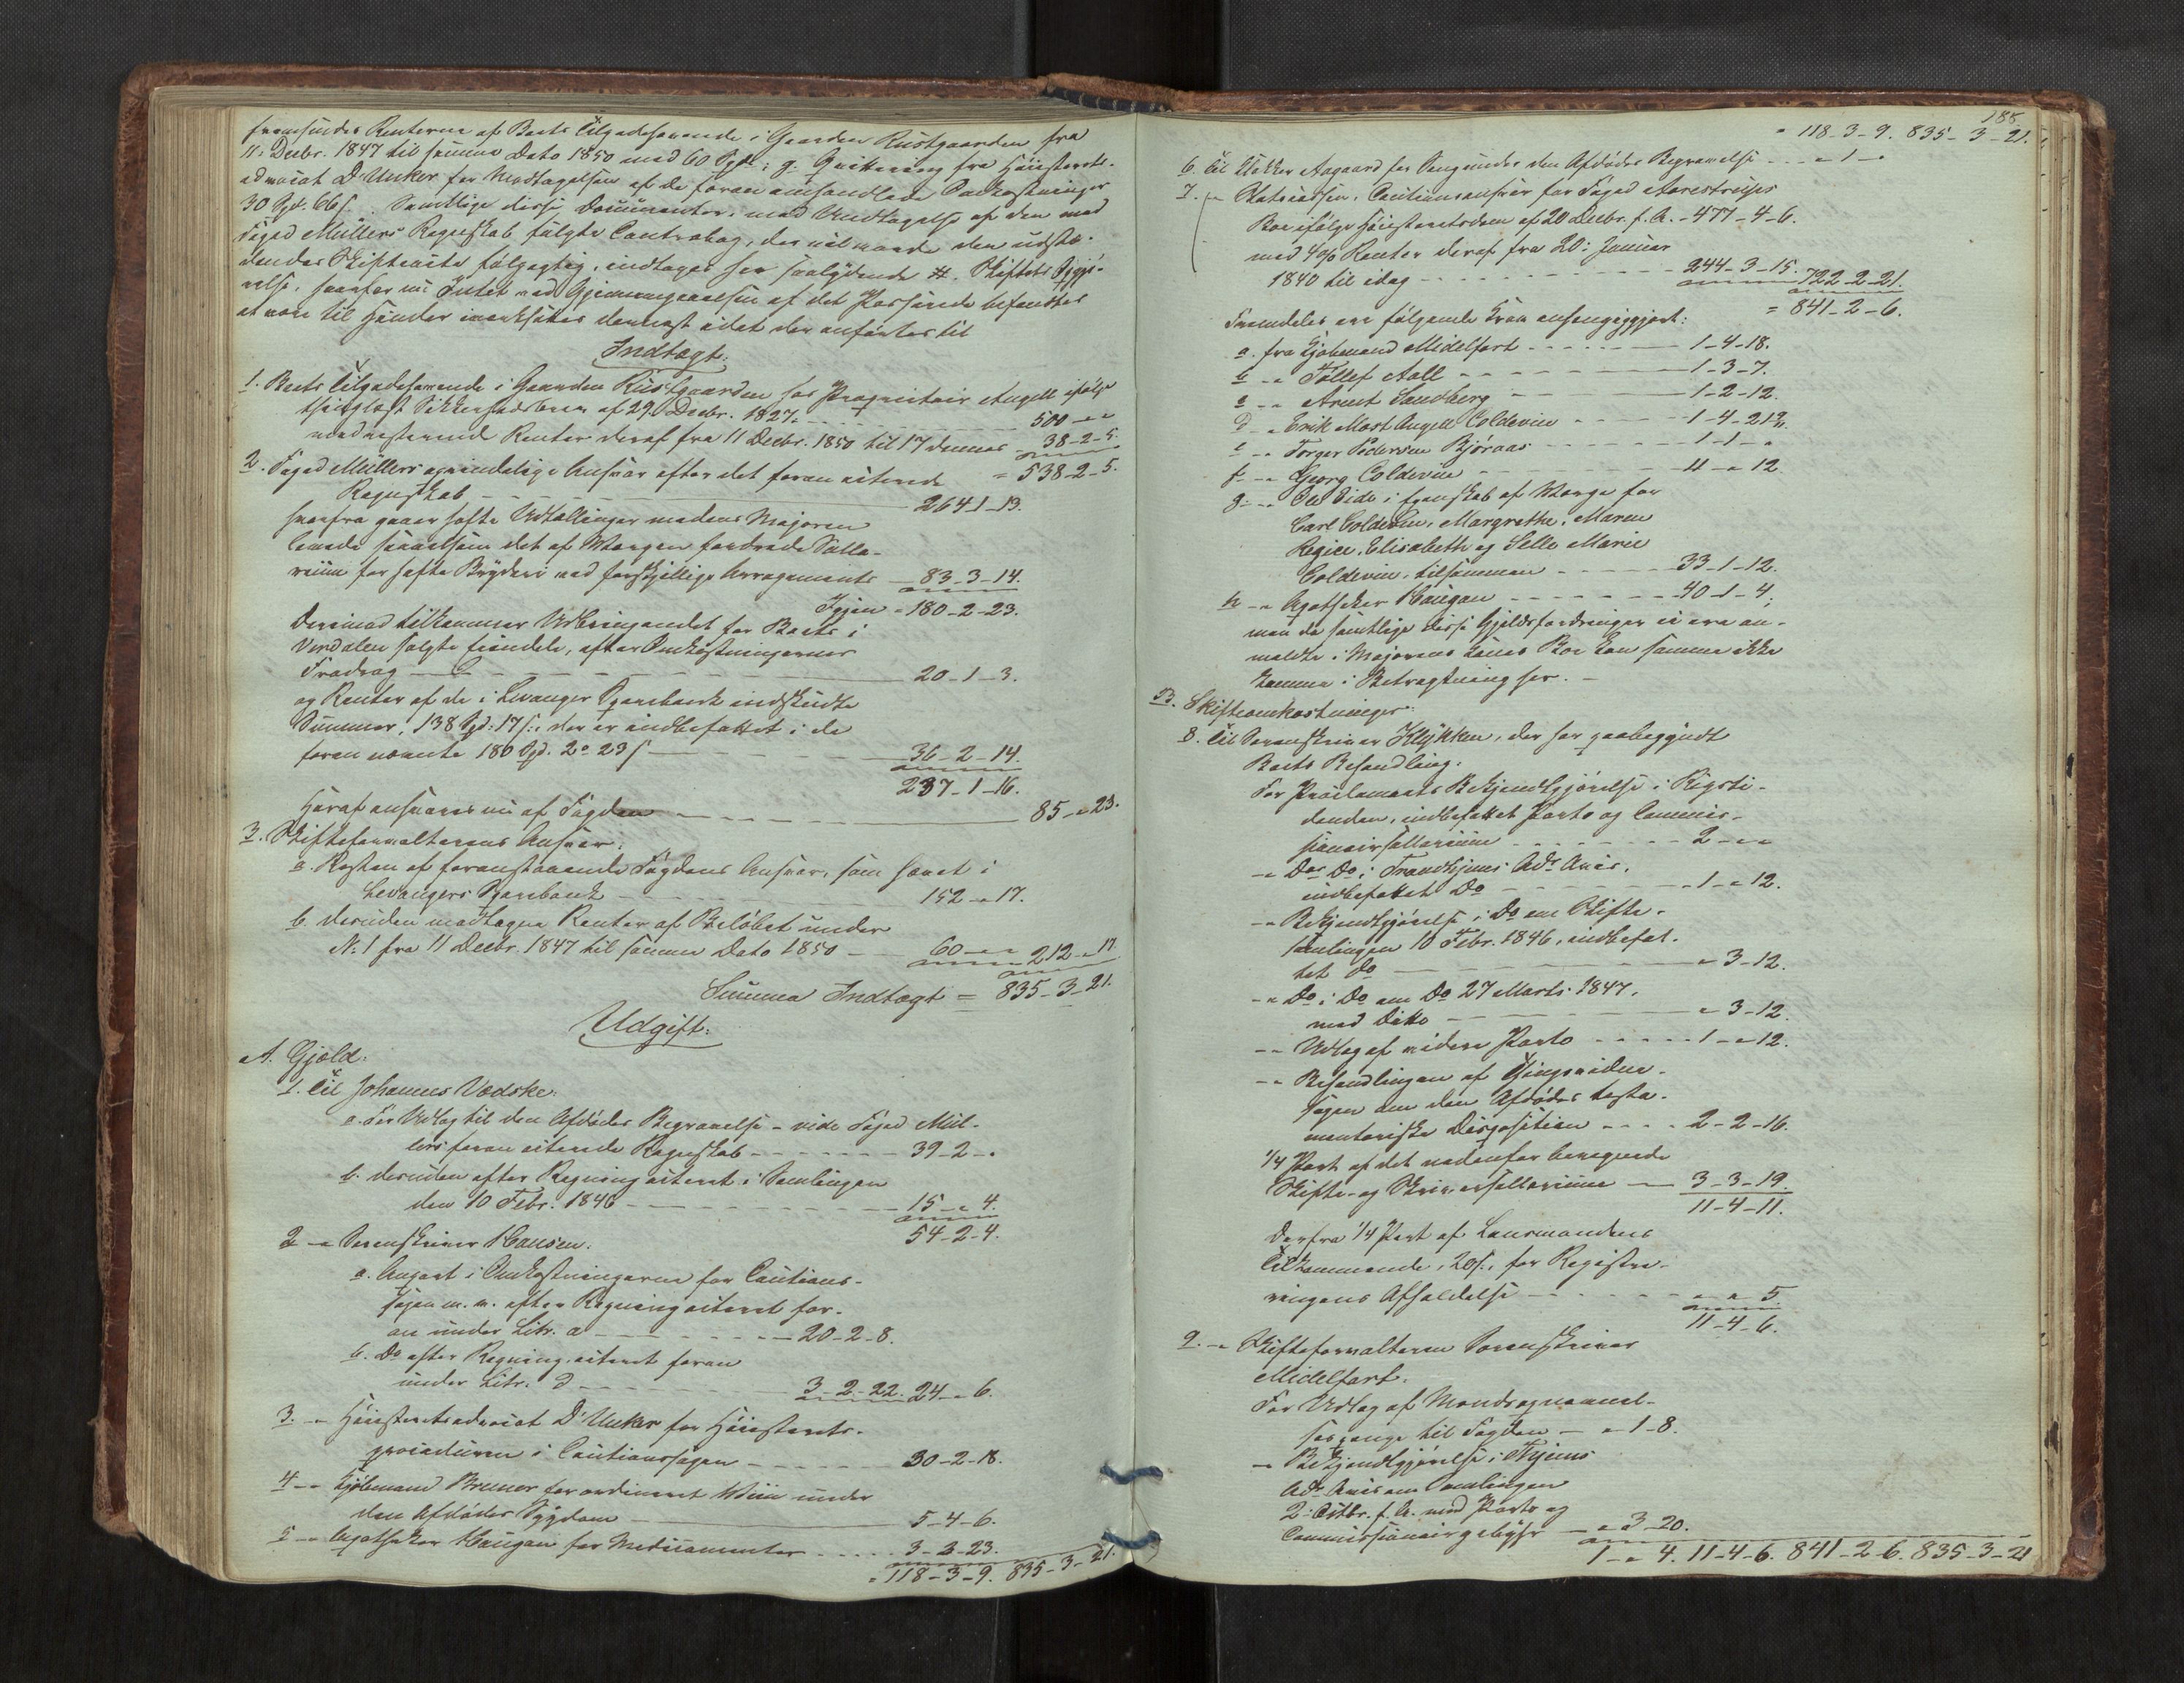 fremsendes Renterne af Boets Tilgodehavende i Gaarden Rustgaarden fra
11: Decbr. 1847 til samme Dato 1850 med 60 Spd.; g. Qvittering fra Høiesterets-
advocat Dr Unker for Modtagelsen af de foran omhandlede Omkostninger
30 Spd. 66 s. Samtlige disse Documenter, med Undtagelse af den med
Foged Müllers Regnskab fulgte Contrabog, der vil vorde den udste-
dendes Skifteacte følgagtig, indtages her saalydende #. Skiftets Opgjø-
relse, hvorfor nu Intet ved Gjennemgaaelsen af det Passerede befandtes
at være til Hinder iværksattes dernæst idet der anførtes til
Indtægt:
1. Boets Tilgodehavende i Gaarden Rustgaarden hos Proprietair Angell ifølge
thinglæst Sikkerhedsbrev af 29 Decbr. 1827. 500 - " - "
med resterende Renter deraf fra 11 Decbr. 1850 til 17 dennes 38-2-5.
= 538-2-5.
2. Foged Müllers oprindelige Ansvar efter det foran citerede
Regnskab 264-1-13.
hvorfra gaaer hafte Udtællinger medens Majoren
levede saavelsom det af Værgen fordrede Salla-
rium for hafte Bryderi ved forskjellige Arrogements 83-3-14.
Igjen = 180-2-23.
Derimod tilkommer Udbringendet for Boets i
Værdalen solgte Eiendele, efter Omkostningernes
Fradrag 20-1-3.
og Renter af de i Levanger Sparebank indskudte
Summer, 138 Spd: 17 s:, der er indbefattet i de
foran nævnte 180 Spd. 2 o 23 s 36-2-14.
237-1-16.
Heraf ansvares nu af Fogden 85-"-23.
3. Skifteforvalterens Ansvar:
a. Resten af foranstaaende Fogdens Ansvar, som havet i
Levangers Sparebank 152-"-17.
b. desuden modtagne Renter af Beløbet under
N: 1 fra 11 Decbr. 1847 til samme Dato 1850 60-"-" 212-"-17
Summa Indtægt = 835-3-21.
Udgift:
A. Gjæld:
1. Til Johannes Vedske:
a. For Udlæg til den Afdødes Begravelse - vide Foged Mül-
lers foran citerede Regnskab 39-2-"
b. desuden efter Regning citeret i Samlingen
den 10 Febr. 1846 15-"-4.
54-2-4.
2 - " Sorenskriver Hansen:
a. Anpart i Omkostningerne for Cautions-
sagen m. v. efter Regning citeret for-
an under Litr. a 20-2-8.
b. Do efter Regning citeret foran
under Litr. d 3-2-22. 24-"-6.
3. - " Høiesteretsadvocat Dr Unker for Høiesterets-
proceduren i Cautionssagen 30-2-18.
4 - " Kjøbmand Bruner for ordineret Viin under
den Afdødes Sygdom 5-4-6.
5 - " Apotheker Haugan for Medicamenter 3-2-23.
= 118-3-9. 835-3-21.
188.
= 118-3-9. 835-3-21.
6. Til Klokker Aagaard for Sang under den Afdødes Begravelse - " - 1 - "
7. - " Statscassen, Cautionsansvar for Foged Aarestrups
Boe ifølge Høiesteretsdom af 20 Decbr. f. A. - 477-4-6.
med 4 % Renter deraf fra 20: Januar
1840 til idag 244-3-15. 722-2-21.
= 841-2-6.
Fremdeles ere følgende Krav anhængiggjort:
a. fra Kjøbmand Midelfart 1-4-18.
b - " Tollef Aall 1-3-7.
c - " Arent Sandberg 1-2-12.
d - " Erik Must Angell Coldevin 1-4-21½.
e - " Torger Pedersen Bjøraas 1-1-"
f - " Georg Coldevin 4-"-12.
g - " Ole Eide i Egenskab af Værge for
Carl Coldevin, Margrethe, Maren
Regice, Elisabeth og Selle Marie
Coldevin, tilsammen 33-1-12.
h - " Apotheker Haugan 40-1-4;
men da samtlige disse Gjeldsfordringer ei ere an-
meldte i Majorens Kones Boe kan samme ikke
komme i Betragtning her. -
B. Skifteomkostninger:
8. Til Sorenskriver Klykken, der har paabegyndt
Boets Behandling:
For Proclamaets Bekjendtgjørelse i Rigsti-
denden, indbefattet Porto og Commis-
sionairsallarium 2-"-"
- " Dos Do i Trondhjems Adr Avis,
indbefattet Do 1-"-12.
- " Bekjendtgjørelse i Do om Skifte-
samlingen 10 Febr. 1846, indbefat-
tet Do "-3-12.
- " Do i Do om Do 27 Marts 1847,
med Ditto "-3-12.
- " Udlæg af videre Porto 1-"-12.
- " Behandlingen af Thingsvidne-
sagen om den Afdødes testa-
mentariske Disposition 2-2-16.
1/4 Part af det nedenfor beregnede
Skifte- og Skriversallarium 3-3-19.
11-4-11.
Derfra 1/4 Part af Lensmandens
Tilkommende, 20 s., for Registre-
ringens Afholdelse "-"-5
11-4-6.
9. - " Skifteforvalteren Sorenskriver
Midelfart.
For Udlæg af Mændsopnævnel-
sespenge til Fogden "-1-8.
- " Bekjendtgjørelse i Thjems
Adr Avis om Samlingen
2: Octbr. f. A. med Porto og
Commissionairgebyhr "-3-20.
1-"-4. 11-4-6. 841-2-6. 835-3-21